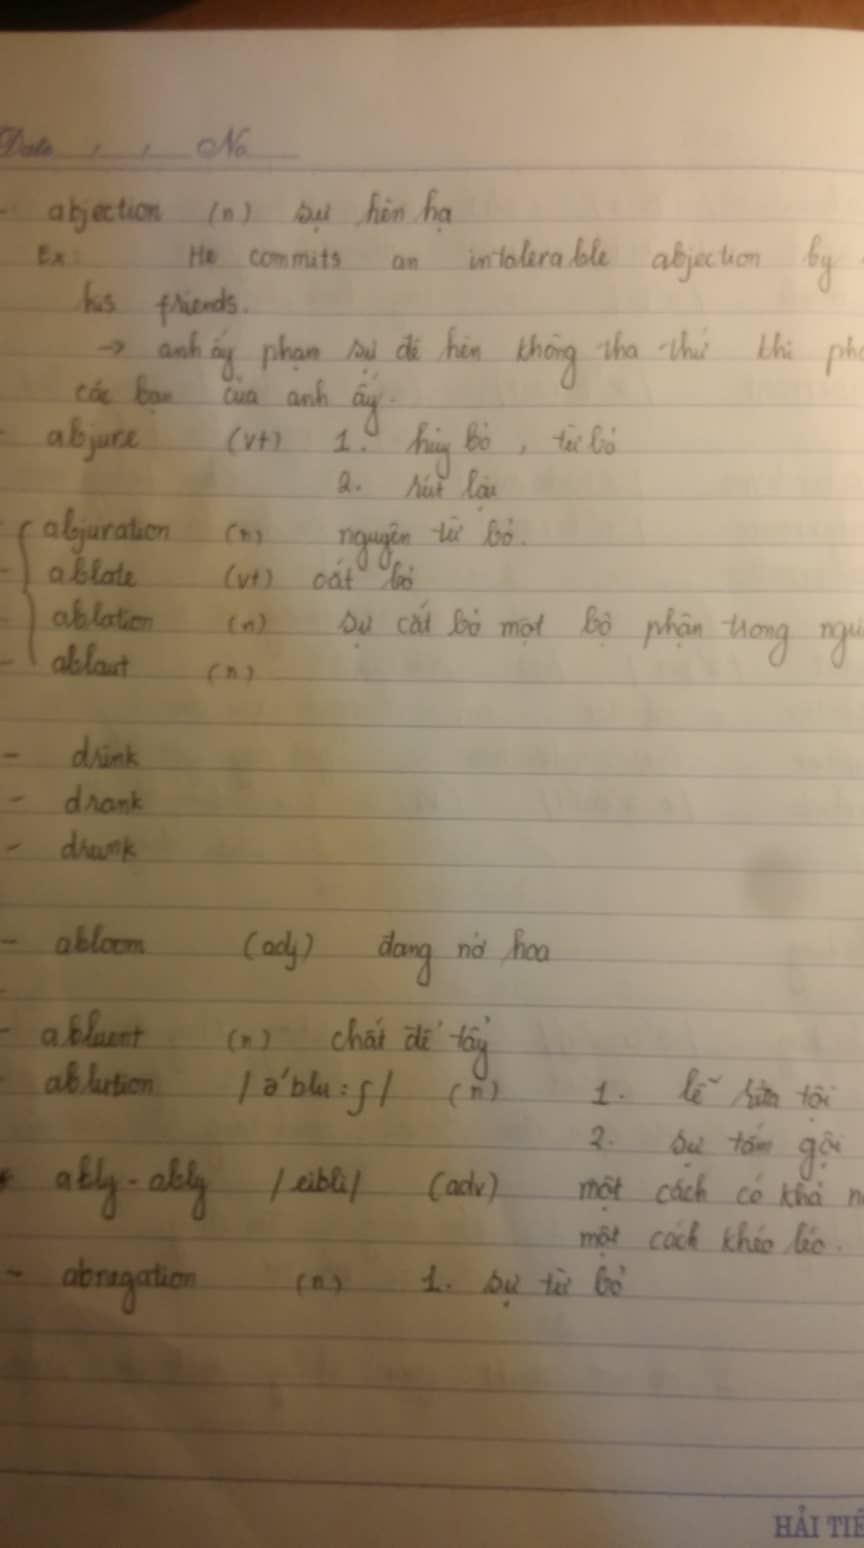 Date , , No
- abjection (n) sự hèn hạ
Ex: He commits an intolerable abjection by
his friends.
→ anh ấy phạm sự đê hèn không tha thứ khi
các bạn của anh ấy.
- abjure (vt) 1. hủy bỏ, từ bỏ
2. rút lại
- abjuration (n) nguyện từ bỏ.
- ablate (vt) cắt bỏ
- ablation (n) sự cắt bỏ một bộ phận trong
- ablaut (n)
- drink
- drank
- drunk
- abloom (adj) đang nở hoa
- abluent (n) chất để tẩy
- ablution /ə'blu:ʃ/ (n) 1. lễ rửa tội
2. sự tắm gội
ably - ably /eibli/ (adv) một cách có khả
một cách khéo léo.
- abnegation (n) 1. sự từ bỏ
HẢI TIÊ